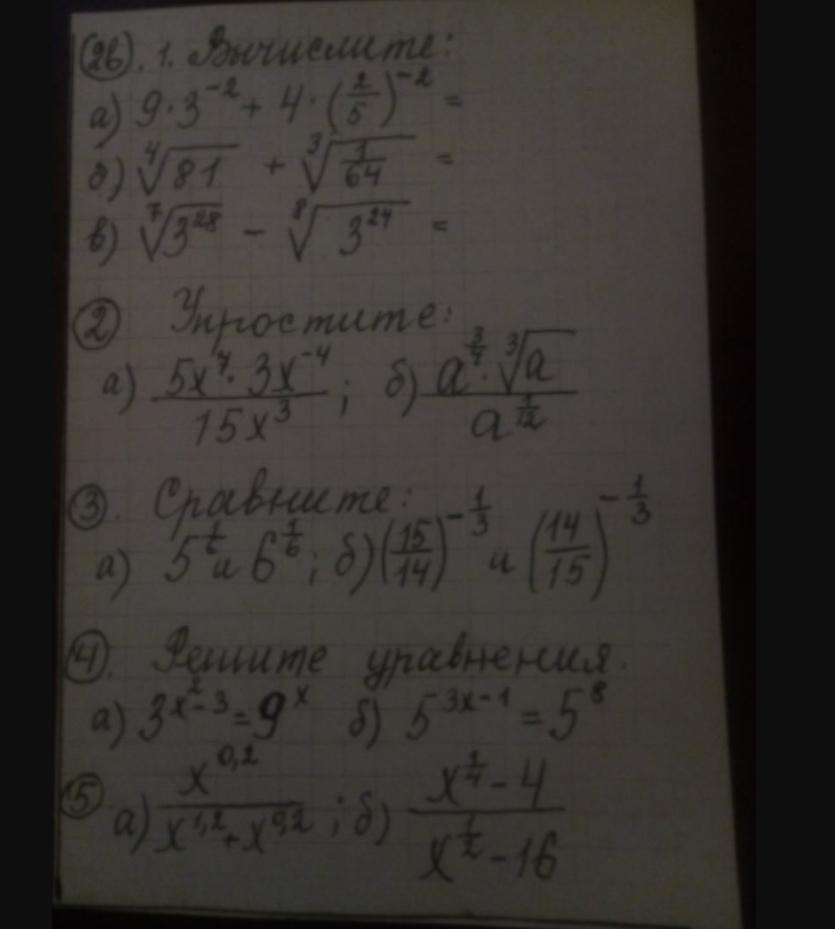 (2в). 1. Вычислите:
а) 9·3⁻² + 4·(2/5)⁻² =
б) ⁴√81 + ³√(1/64) =
в) ⁷√(3²⁸) - ⁸√(3²⁴) =
② Упростите:
а) (5x⁷·3x⁻⁴)/(15x³); б) (a^(3/4)·³√a)/(a^(1/12))
③. Сравните:
а) и 6^(1/6); б) (15/14)^(-1/3) и (14/15)^(-1/3)
④. Решите уравнения.
а) 3^(x²-3) = 9^x б) 5^(3x-1) = 5⁸
⑤ а) x^(0,2)/(x^(1,2)+x^(0,2)); б) (x^(1/4)-4)/(x^(1/2)-16)